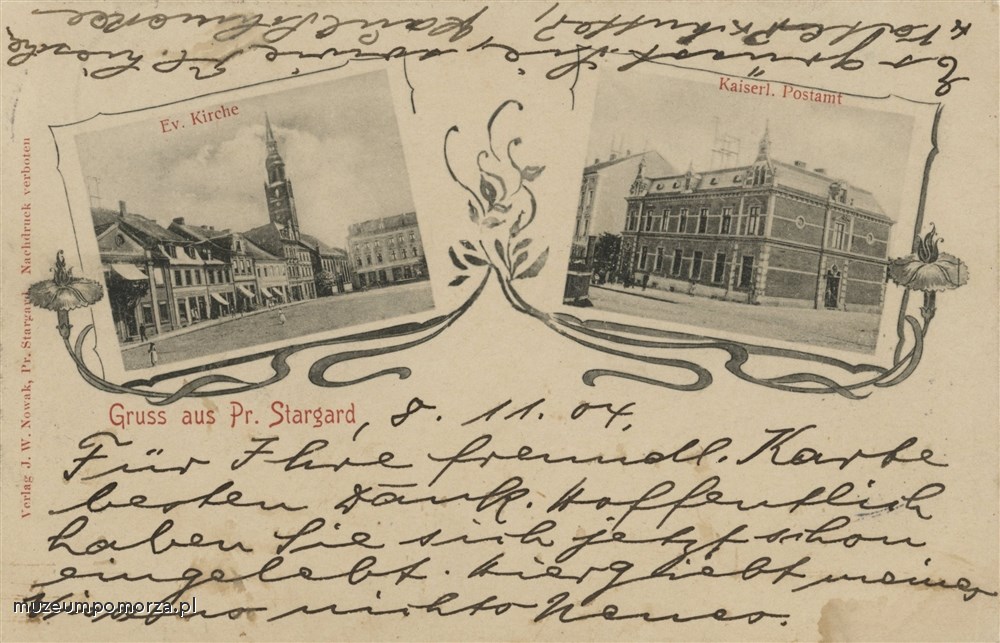 Ev. Kirche
Kaiserl. Postamt
Verlag J. W. Nowak, Pr. Stargard. Nachdruck verboten
Gruss aus Pr. Stargard, 8. 11. 04.
Für Ihre freundl. Karte
besten Dank. Hoffentlich
haben Sie sich jetzt schon
eingelebt. Hier giebt meines
Wissens nichts Neues.
Es grüsst Sie, sowie
muzeumpomorza.pl